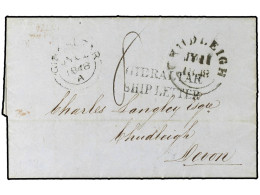 CHUDLEIGH
JY 11
1848
GIBRALTAR
SHIP LETTER
1848
A
8
Charles Langley Esqr.
Chudleigh
Devon